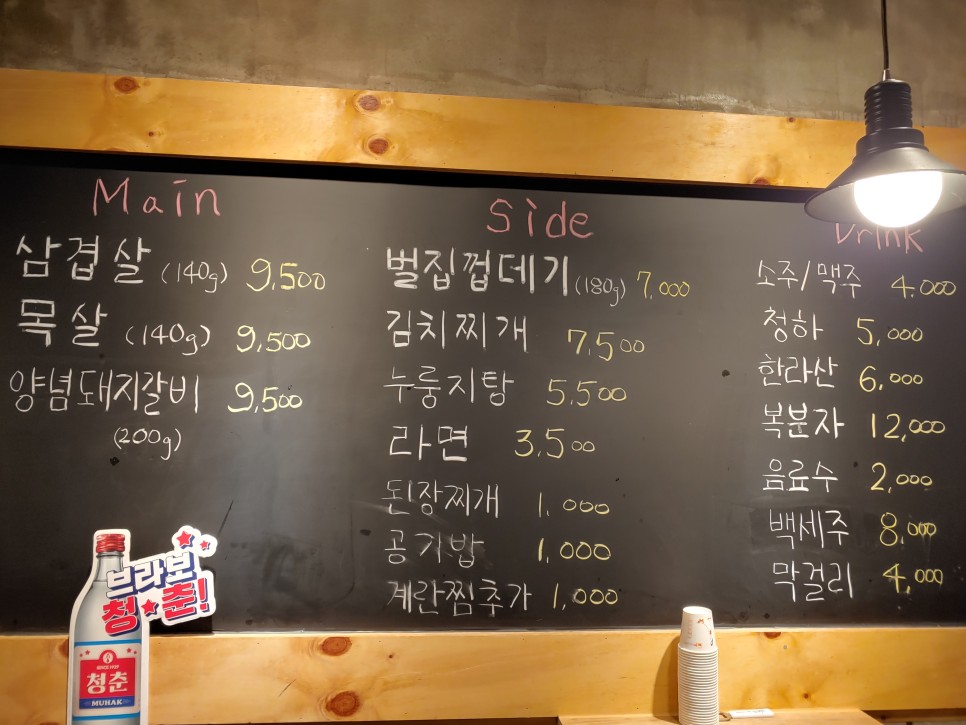 Main
삼겹살 (140g) 9,500
목살 (140g) 9,500
양념돼지갈비 9,500
(200g)
Side
벌집껍데기 (180g) 7,000
김치찌개 7,500
누룽지탕 5,500
라면 3,500
된장찌개 1,000
공기밥 1,000
계란찜추가 1,000
Drink
소주/맥주 4,000
청하 5,000
한라산 6,000
복분자 12,000
음료수 2,000
백세주 8,000
막걸리 4,000
브라보
청★춘!
SINCE 1929
청춘
MUHAK